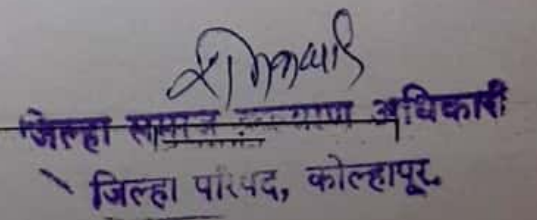 जिल्हा समाज कल्याण अधिकारी
जिल्हा परिषद, कोल्हापूर.